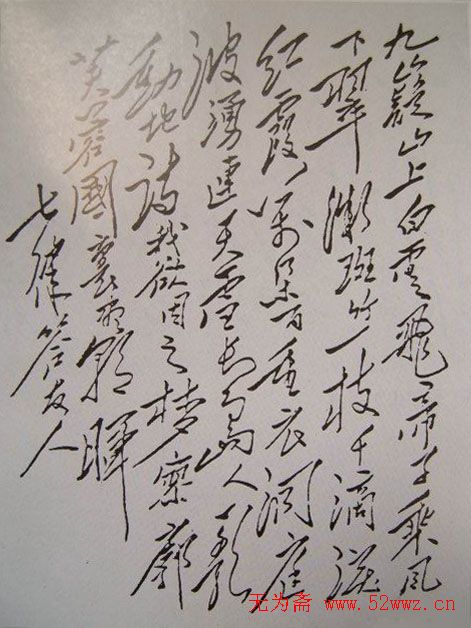 九嶷山上白雲飛帝子乘風
下翠微斑竹一枝千滴淚
紅霞萬朵百重衣洞庭
波湧連天雪長島人歌
動地詩我欲因之夢寥廓
芙蓉國裏盡朝暉
七律答友人
无为斋 www.52wwz.cn